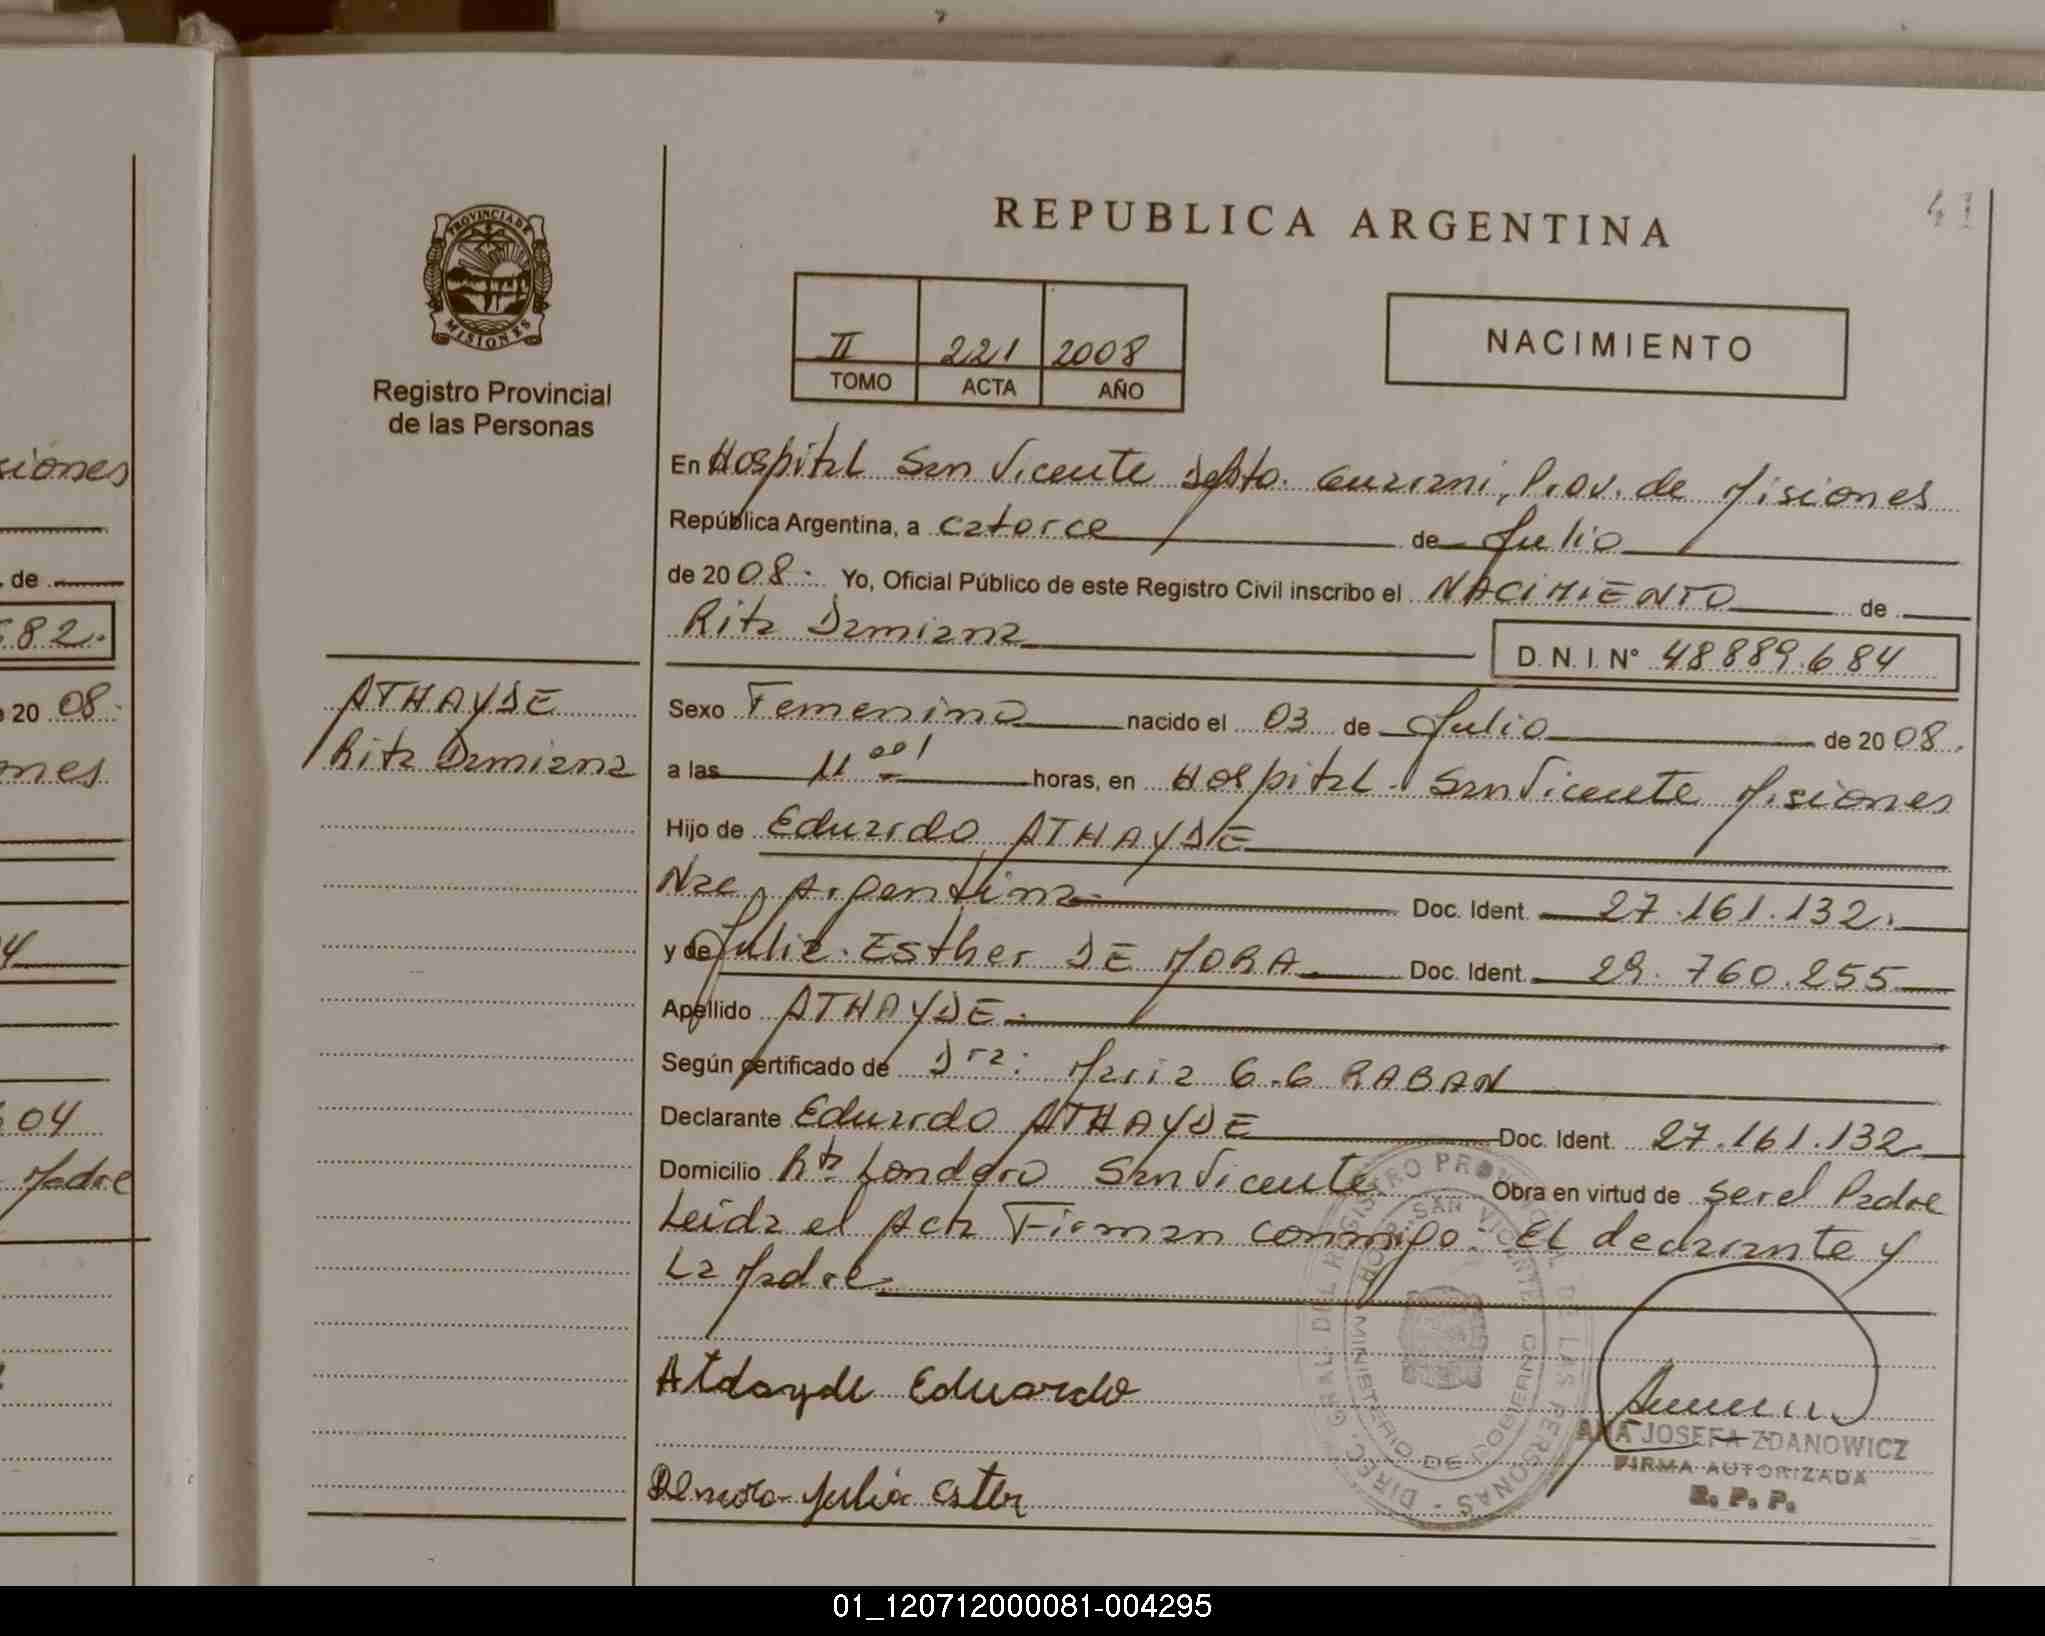 REPUBLICA ARGENTINA
41
PROVINCIA DE MISIONES
Registro Provincial
de las Personas
II 221 2008
TOMO ACTA AÑO
NACIMIENTO
En Hospital San Vicente Depto. Guarani, Prov. de Misiones
República Argentina, a catorce de Julio
de 2008. Yo, Oficial Público de este Registro Civil inscribo el NACIMIENTO de
Rita Damiana
D.N.I. N° 48889.684
ATHAYDE
Rita Damiana
Sexo Femenino nacido el 03 de Julio de 2008.
a las 11 00' horas, en Hospital San Vicente Misiones
Hijo de Eduardo ATHAYDE
Nac. Argentina Doc. Ident. 27.161.132.
y de Julia Esther DE MORA Doc. Ident. 29.760.255
Apellido ATHAYDE.
Según certificado de Dra: Maria G.G RABAN
Declarante Eduardo ATHAYDE Doc. Ident. 27.161.132
Domicilio Rta Londero San Vicente Obra en virtud de ser el Padre
Leida el Acta Firman conmigo: El declarante y
La Madre.
Atdayde Eduardo
Demora Julia Ester
DIREC. GRAL. DEL REGISTRO PROVINCIAL DE LAS PERSONAS
HOSP. SAN VICENTE
MINISTERIO DE GOBIERNO
ANA JOSEFA ZDANOWICZ
FIRMA AUTORIZADA
R. P. P.
siones
. de
682.
20 08.
ones
4
604
Madre
01_120712000081-004295